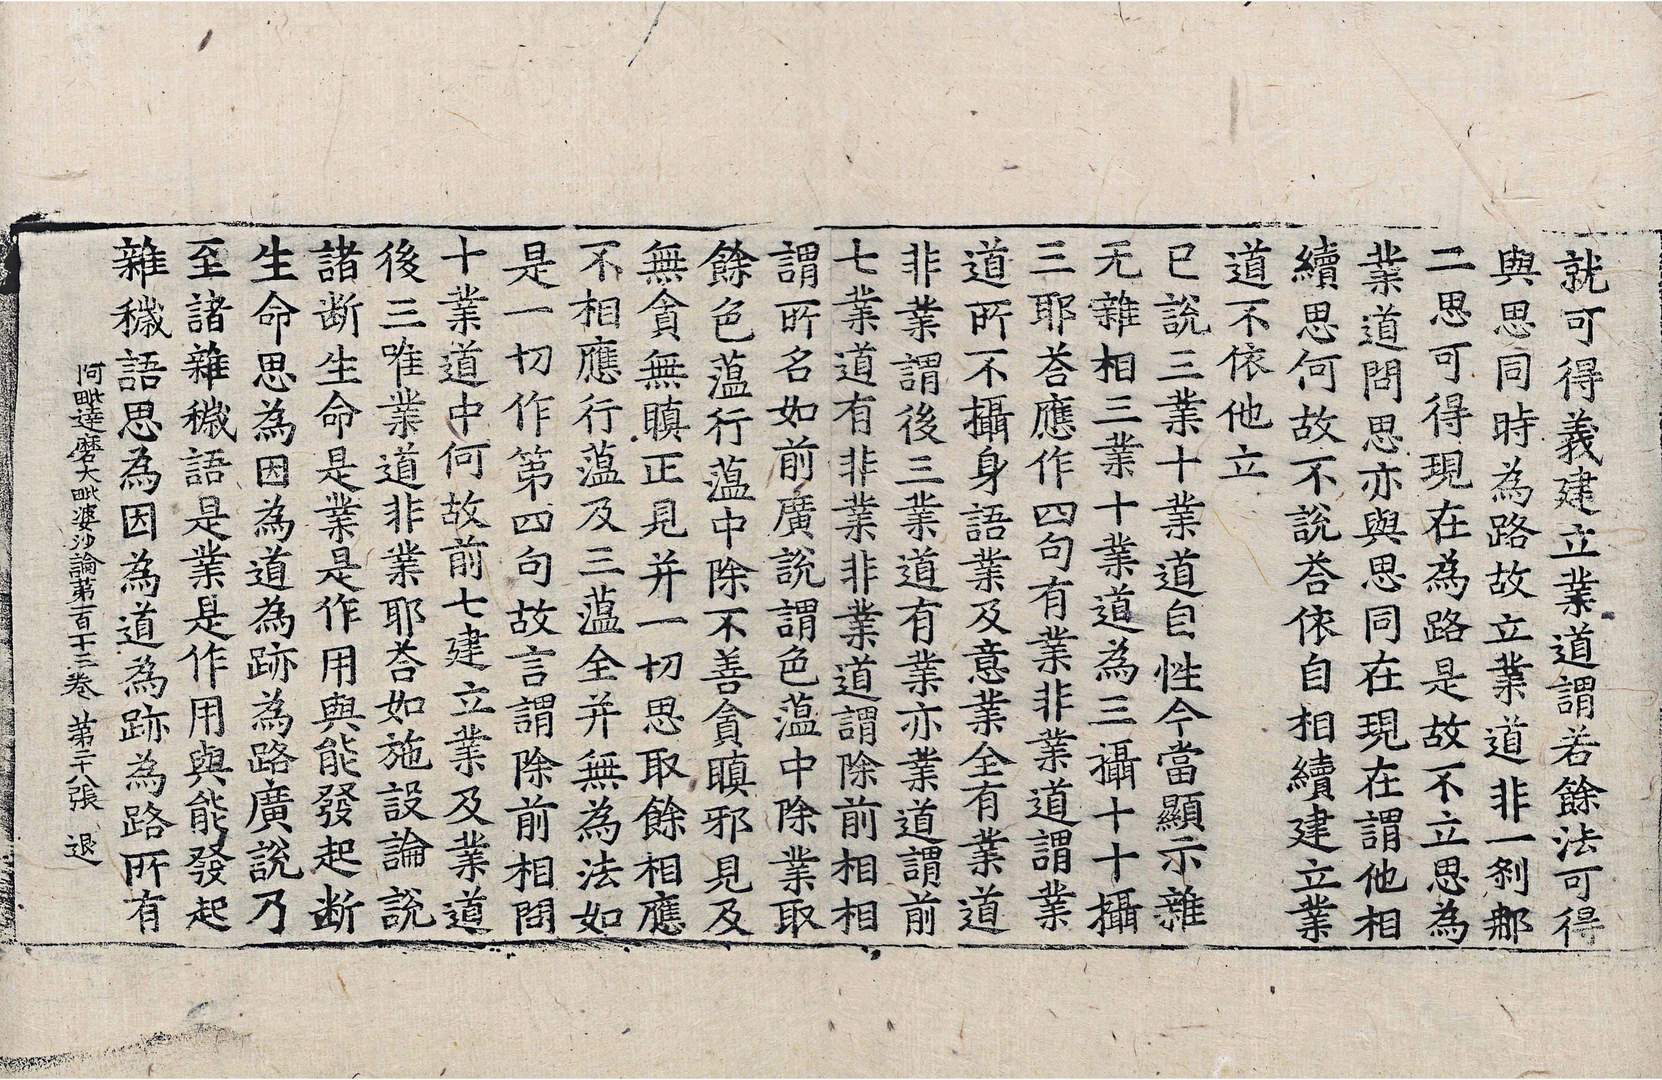 就可得義建立業道謂若餘法可得
與思同時為路故立業道非一刹那
二思可得現在為路是故不立思為
業道問思亦與思同在現在謂他相
續思何故不說荅依自相續建立業
道不依他立
已說三業十業道自性今當顯示雜
无雜相三業十業道為三攝十十攝
三耶荅應作四句有業非業道謂業
道所不攝身語業及意業全有業道
非業謂後三業道有業亦業道謂前
七業道有非業非業道謂除前相相
謂所名如前廣說謂色薀中除業取
餘色薀行薀中除不善貪瞋邪見及
無貪無瞋正見并一切思取餘相應
不相應行薀及三薀全并無為法如
是一切作第四句故言謂除前相問
十業道中何故前七建立業及業道
後三唯業道非業耶荅如施設論說
諸断生命是業是作用與能發起断
生命思為因為道為跡為路廣說乃
至諸雜穢語是業是作用與能發起
雜穢語思為因為道為跡為路所有
阿毗達磨大毗婆沙論第一百十三卷 第二十八張 退